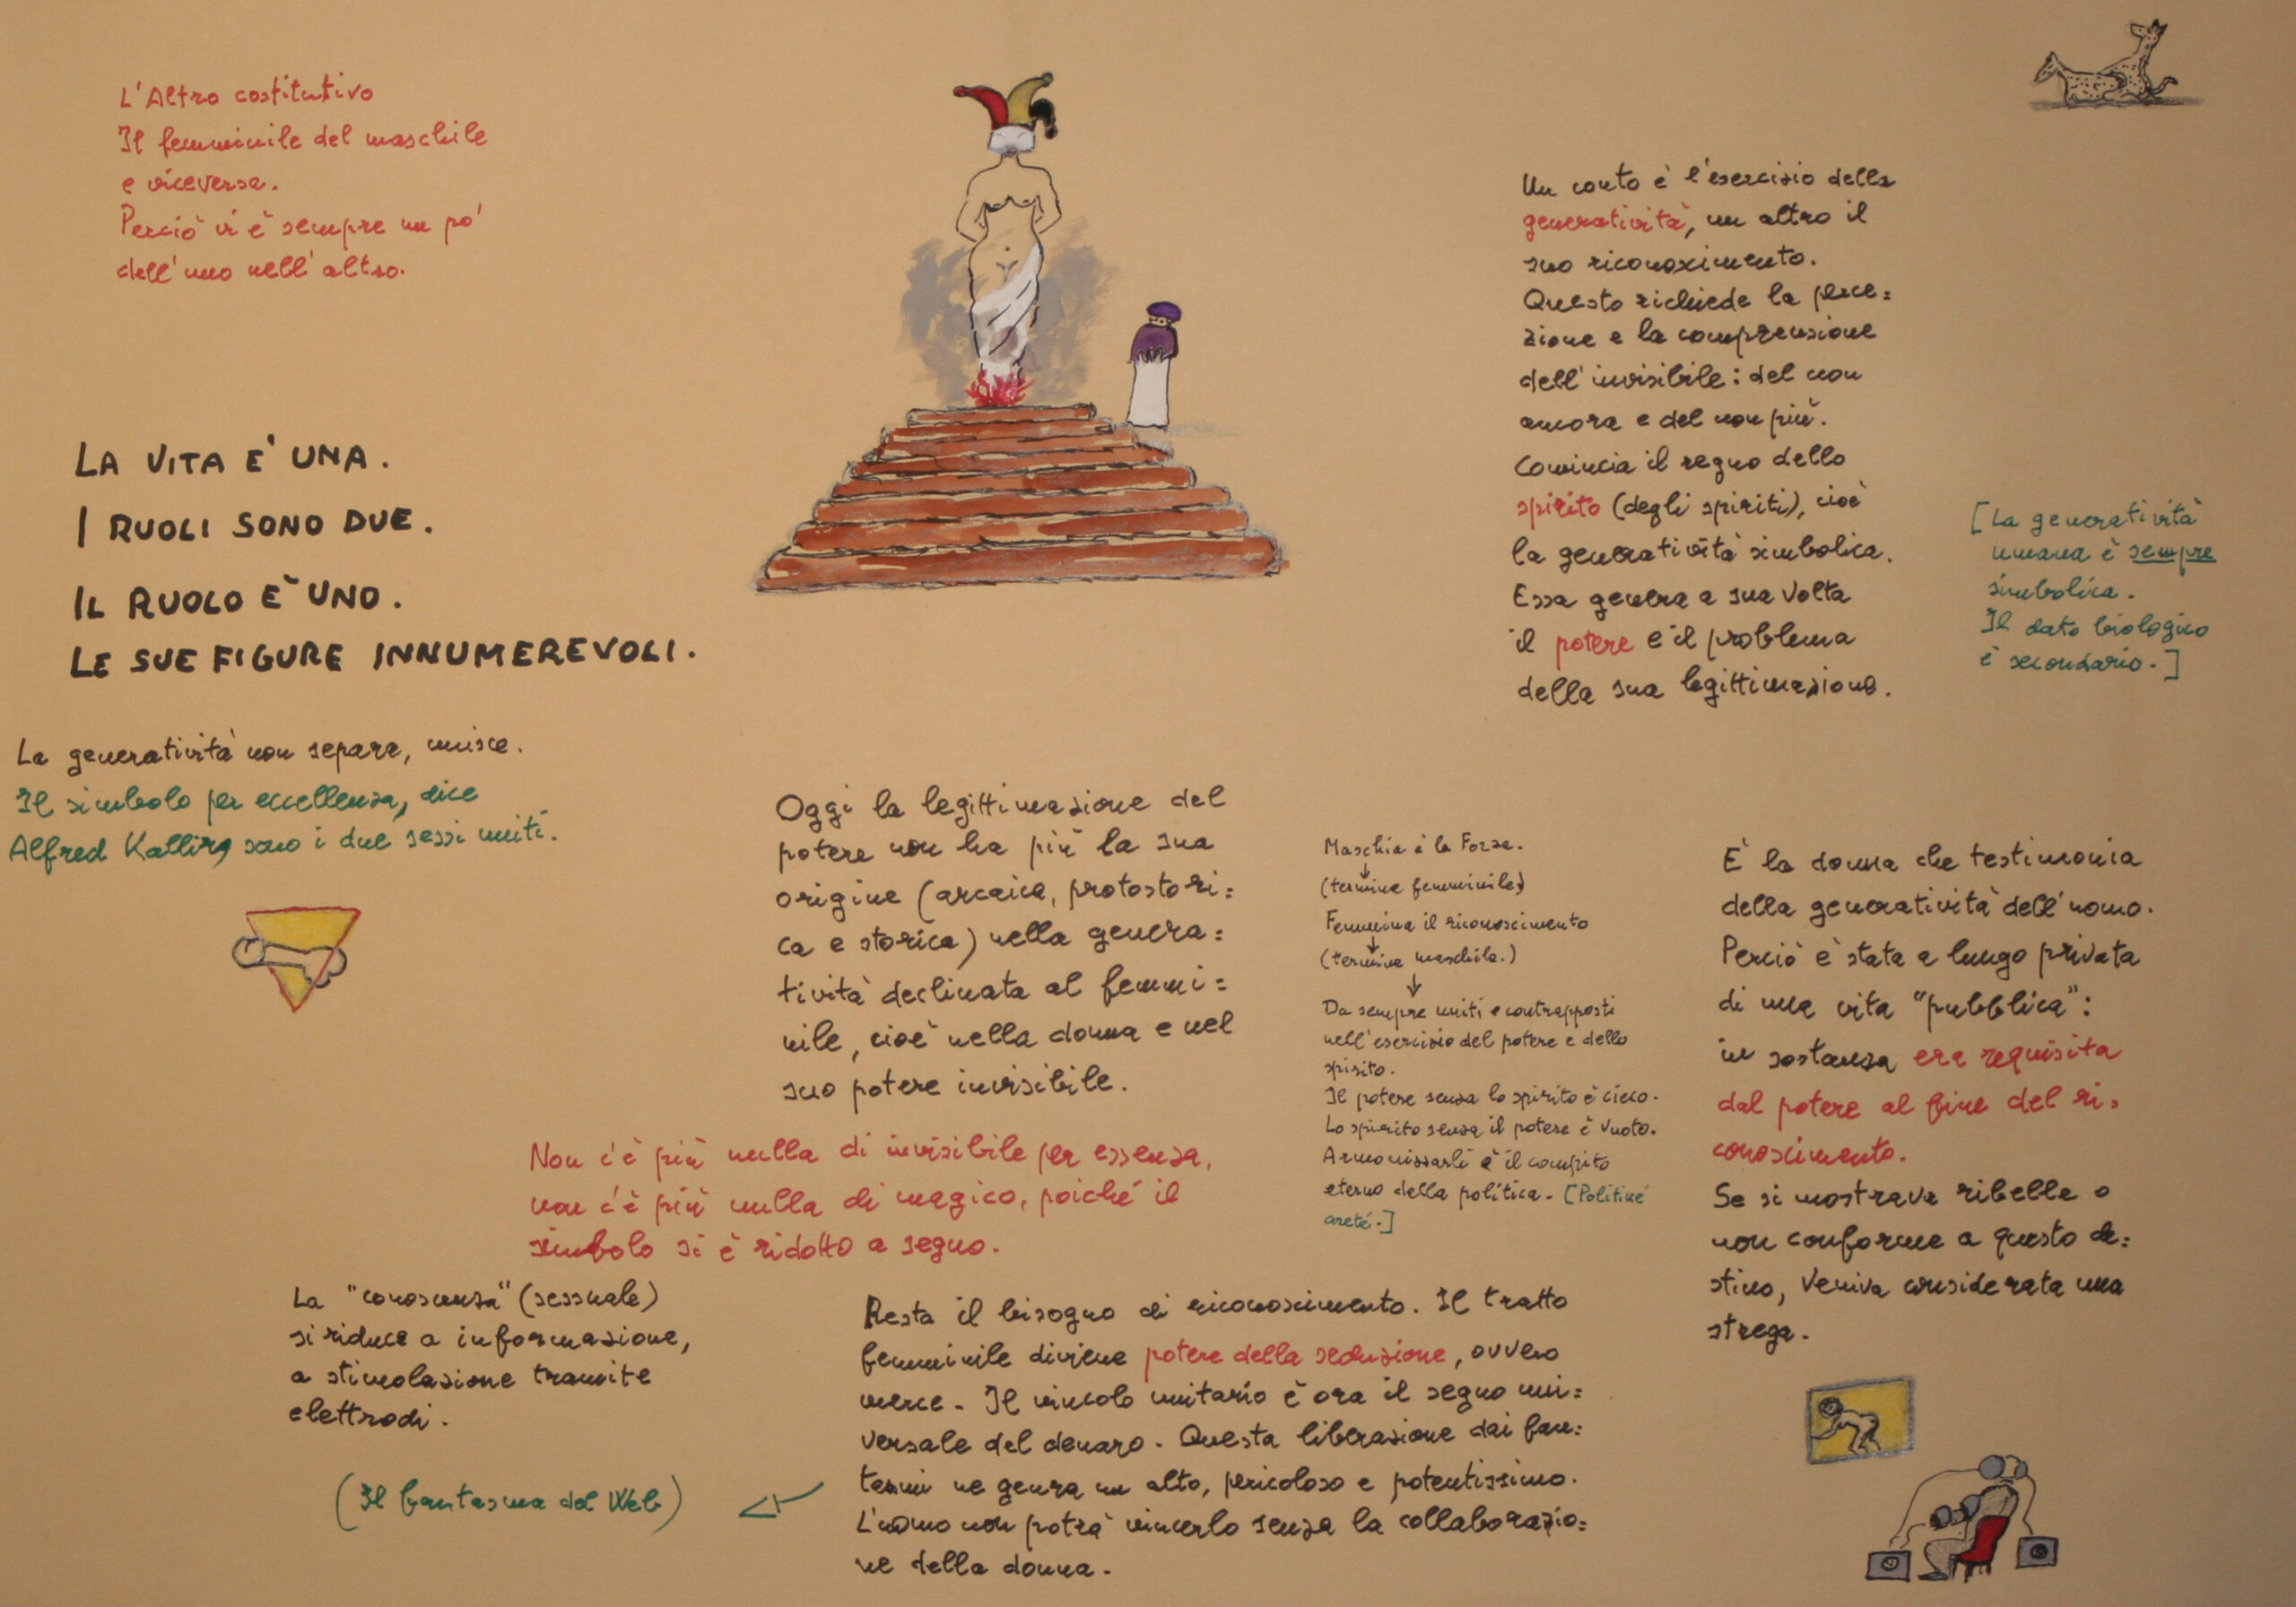 L'Altro costitutivo
Il femminile del maschile
e viceversa.
Perciò vi è sempre un po'
dell'uno nell'altro.
LA VITA E' UNA.
I RUOLI SONO DUE.
IL RUOLO E' UNO.
LE SUE FIGURE INNUMEREVOLI.
La generatività non separa, unisce.
Il simbolo per eccellenza, dice
Alfred Kallir, sono i due sessi uniti.
Un conto è l'esercizio della
generatività, un altro il
suo riconoscimento.
Questo richiede la perce=
zione e la comprensione
dell'invisibile: del non
ancora e del non più.
Comincia il regno dello
spirito (degli spiriti), cioè
la generatività simbolica.
Essa genera a sua volta
il potere e il problema
della sua legittimazione.
[La generatività
umana è sempre
simbolica.
Il dato biologico
è secondario.]
Oggi la legittimazione del
potere non ha più la sua
origine (arcaica, protostori=
ca e storica) nella genera=
tività declinata al femmi=
nile, cioè nella donna e nel
suo potere invisibile.
Non c'è più nulla di invisibile per essenza,
non c'è più nulla di magico, poiché il
simbolo si è ridotto a segno.
La "conoscenza" (sessuale)
si riduce a informazione,
a stimolazione tramite
elettrodi.
(Il fantasma del Web)
Maschia è la Forza.
(termine femminile)
Femmina il riconoscimento
(termine maschile.)
Da sempre uniti e contrapposti
nell'esercizio del potere e dello
spirito.
Il potere senza lo spirito è cieco.
Lo spirito senza il potere è vuoto.
Armonizzarli è il compito
eterno della politica. [Politiké
areté.]
Resta il bisogno di riconoscimento. Il tratto
femminile diviene potere della seduzione, ovvero
merce. Il vincolo unitario è ora il segno uni=
versale del denaro. Questa liberazione dai fan=
tasmi ne genera un alto, pericoloso e potentissimo.
L'uomo non potrà vincerlo senza la collaborazio=
ne della donna.
E' la donna che testimonia
della generatività dell'uomo.
Perciò è stata a lungo privata
di una vita "pubblica":
in sostanza era requisita
dal potere al fine del ri=
conoscimento.
Se si mostrava ribelle o
non conforme a questo de=
stino, veniva considerata una
strega.